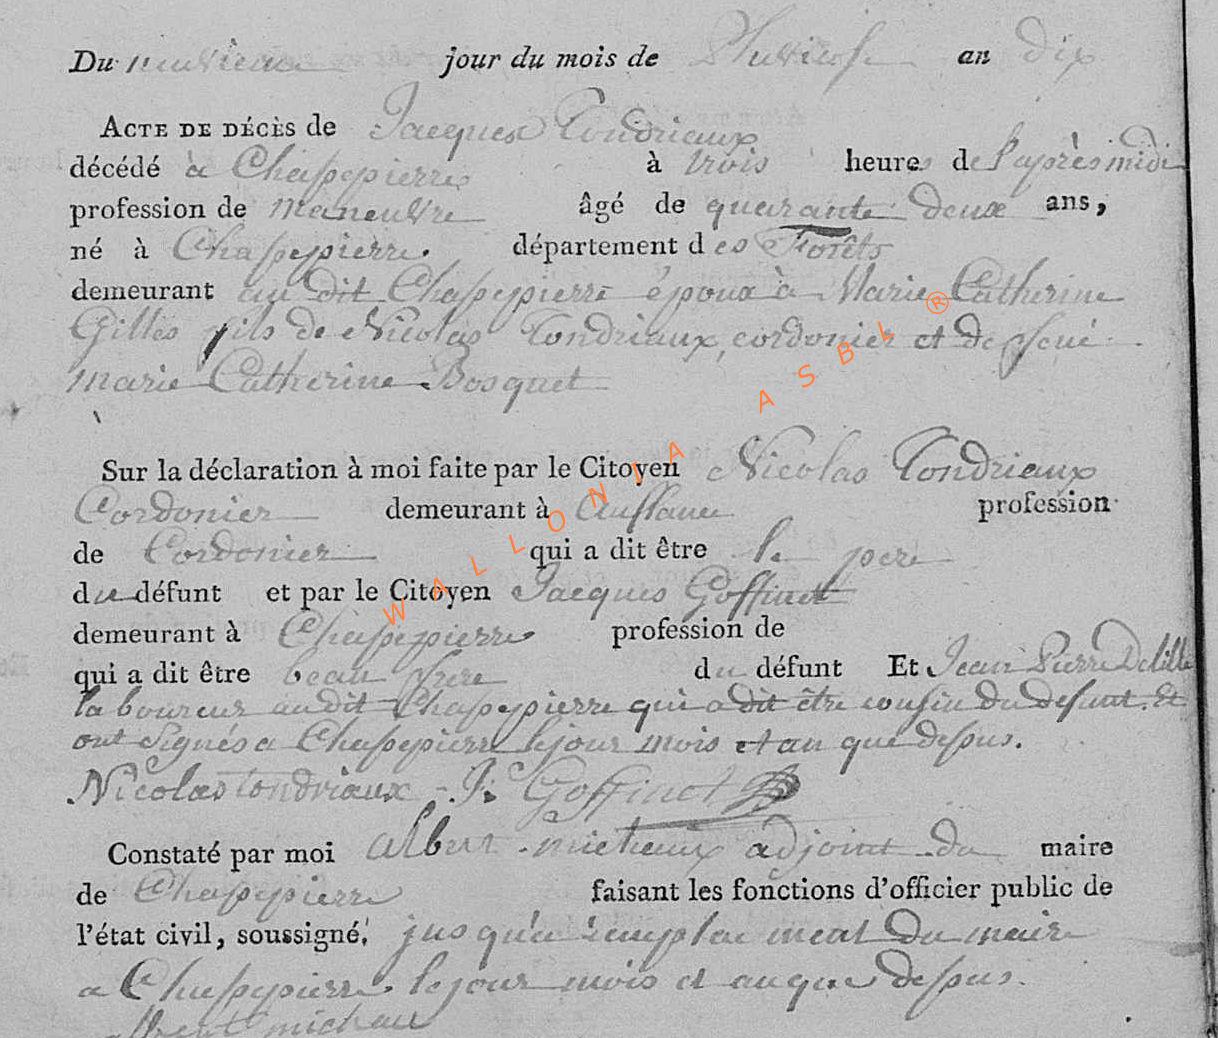 Du neuvieme jour du mois de Pluviose an dix
ACTE DE DÉCÈS de Jacques Tondriaux
décédé à Chassepierre à trois heures de l'après midi
profession de maneuvre âgé de quarante deux ans,
né à Chassepierre. département des Forêts
demeurant au dit Chassepierre époux à Marie Catherine
Gilles fils de Nicolas Tondriaux, cordonier et de feue
marie Catherine Bosquet
Sur la déclaration à moi faite par le Citoyen Nicolas Tondriaux
Cordonier demeurant à profession
de Cordonier qui a dit être le pere
du défunt et par le Citoyen Jacques Goffinet
demeurant à Chassepierre profession de
qui a dit être beau frere du défunt Et Jean Pierre Delille
laboureur audit Chassepierre qui a dit être cousin du defunt. Et
ont signés a Chassepierre le jour mois et an que dessus.
Nicolas tondriaux - J: Goffinet
Constaté par moi michaux adjoint du maire
de Chassepierre faisant les fonctions d'officier public de
l'état civil, soussigné, jusqu'a remplacement du maire
a Chassepierre le jour mois et an que dessus.
michaux
WALLONIA ASBL ®